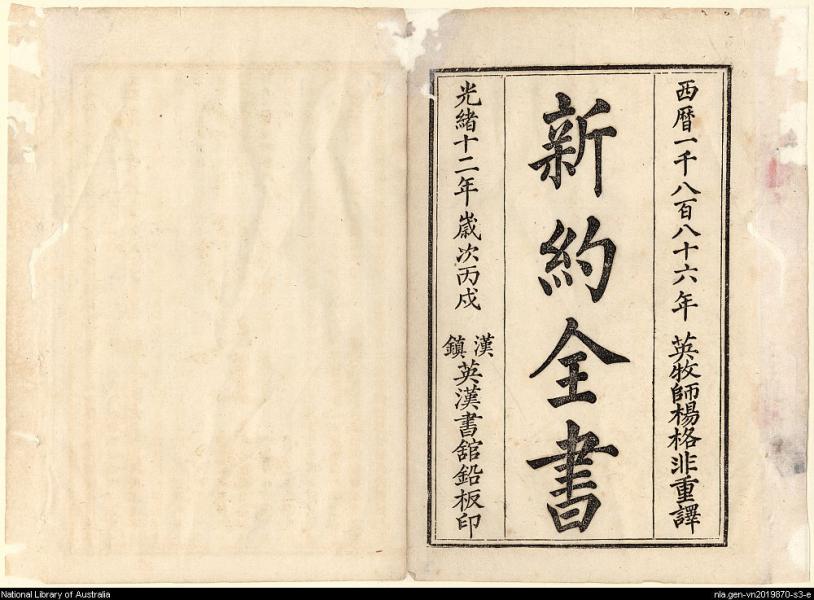 西暦一千八百八十六年 英牧師楊格非重譯
新約全書
光緒十二年歲次丙戍
漢鎮英漢書舘鉛板印
National Library of Australia
nla.gen-vn2019870-s3-e